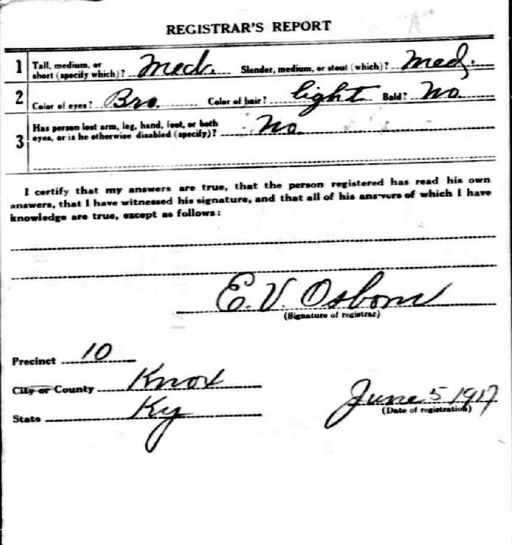 REGISTRAR'S REPORT
1 Tall, medium, or short (specify which)? Med. Slender, medium, or stout (which)? Med.
2 Color of eyes? Bro. Color of hair? light Bald? No
3 Has person lost arm, leg, hand, foot, or both eyes, or is he otherwise disabled (specify)? No
I certify that my answers are true, that the person registered has read his own
answers, that I have witnessed his signature, and that all of his answers of which I have
knowledge are true, except as follows:
E. V. Osborn
(Signature of registrar)
Precinct 10
City or County Knox
State Ky
June 5 1917
(Date of registration)